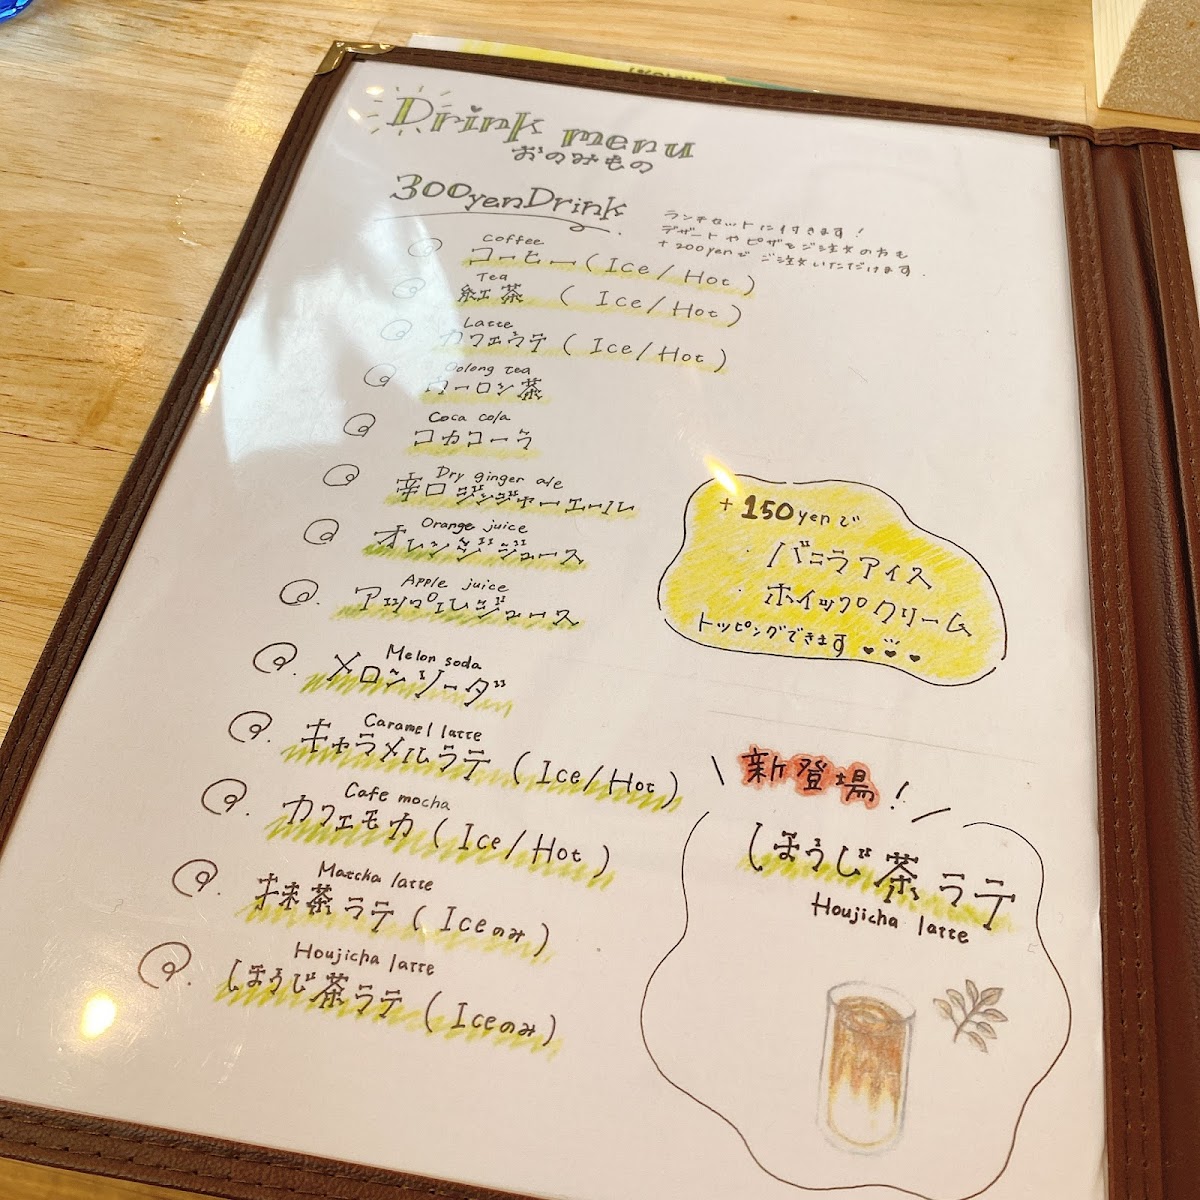 Drink menu
おのみもの
300yenDrink
ランチセットに付きます！
デザートやピザをご注文の方も
+200yenでご注文いただけます.
Coffee
コーヒー(Ice/Hot)
Tea
紅茶 (Ice/Hot)
Latte
カフェラテ(Ice/Hot)
Oolong tea
ウーロン茶
Coca cola
コカコーラ
Dry ginger ale
辛口ジンジャーエール
Orange juice
オレンジジュース
Apple juice
アップルジュース
Melon soda
メロンソーダ
Caramel latte
キャラメルラテ(Ice/Hot)
Cafe mocha
カフェモカ(Ice/Hot)
Matcha latte
抹茶ラテ(Iceのみ)
Houjicha latte
ほうじ茶ラテ(Iceのみ)
+150yenで
・バニラアイス
・ホイップクリーム
トッピングできます
新登場！
ほうじ茶ラテ
Houjicha latte